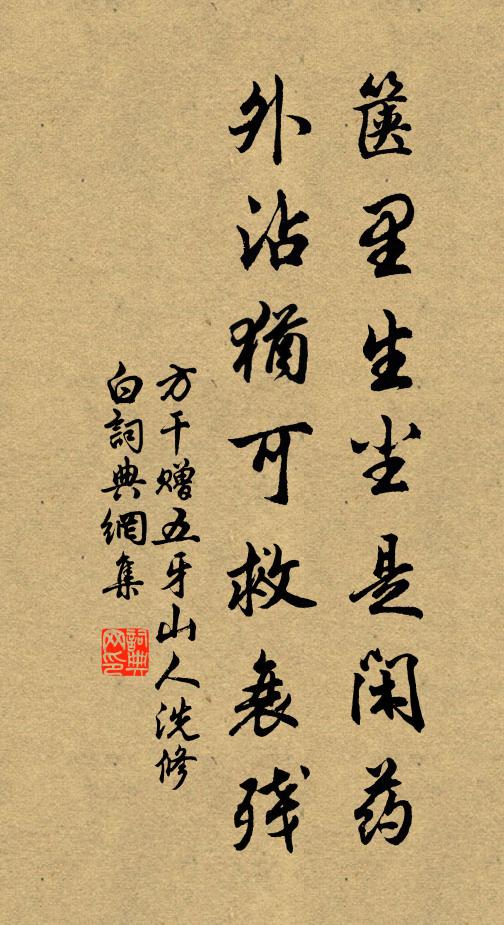 箧里生尘是闲药
外沾犹可救衰残
方干赠五牙山人洗修
白詞典網集
詞典網印